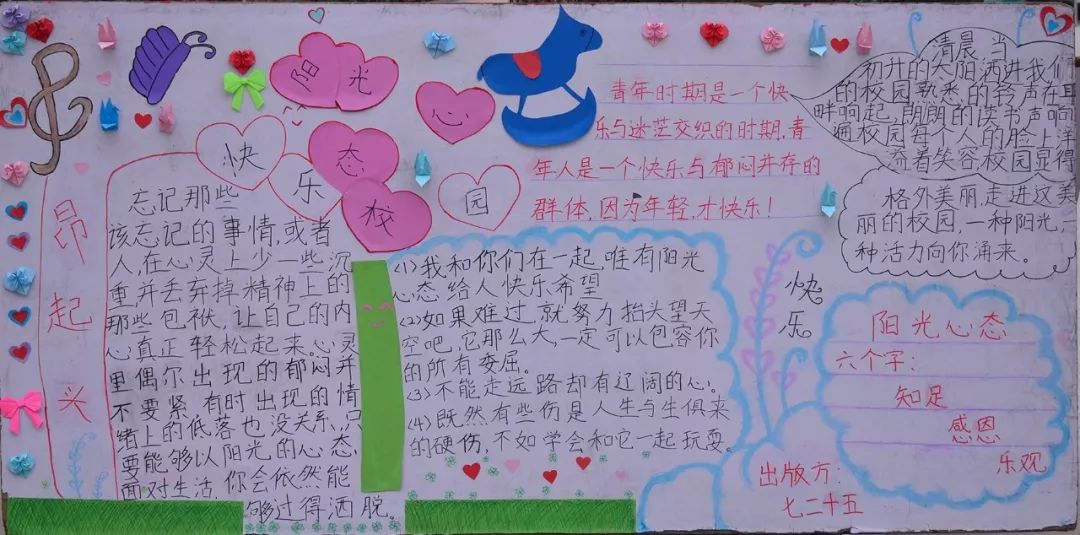 阳光
心态
快乐校园
昂
起
头
忘记那些
该忘记的事情,或者
人,在心灵上少一些沉
重,并丢弃掉精神上的
那些包袱,让自己的内
心真正轻松起来。心灵
里偶尔出现的郁闷并
不要紧,有时出现的情
绪上的低落也没关系,只
要能够以阳光的心态,
面对生活,你会依然能
够过得洒脱。
青年时期是一个快
乐与迷茫交织的时期,青
年人是一个快乐与郁闷并存的
群体,因为年轻,才快乐!
(1)我和你们在一起,唯有阳光
心态给人快乐希望
(2)如果难过,就努力抬头望天
空吧,它那么大,一定可以包容你
的所有委屈。
(3)不能走远路却有辽阔的心。
(4)既然有些伤是人生与生俱来
的硬伤,不如学会和它一起玩耍。
清晨,当
初升的太阳洒进我们
的校园,熟悉的铃声在耳
畔响起,朗朗的读书声响
遍校园每个人的脸上洋
溢着笑容校园显得
格外美丽.走进这美
丽的校园,一种阳光,一
种活力向你涌来。
快
乐
阳光心态
六个字:
知足
感恩
乐观
出版方:
七二十五